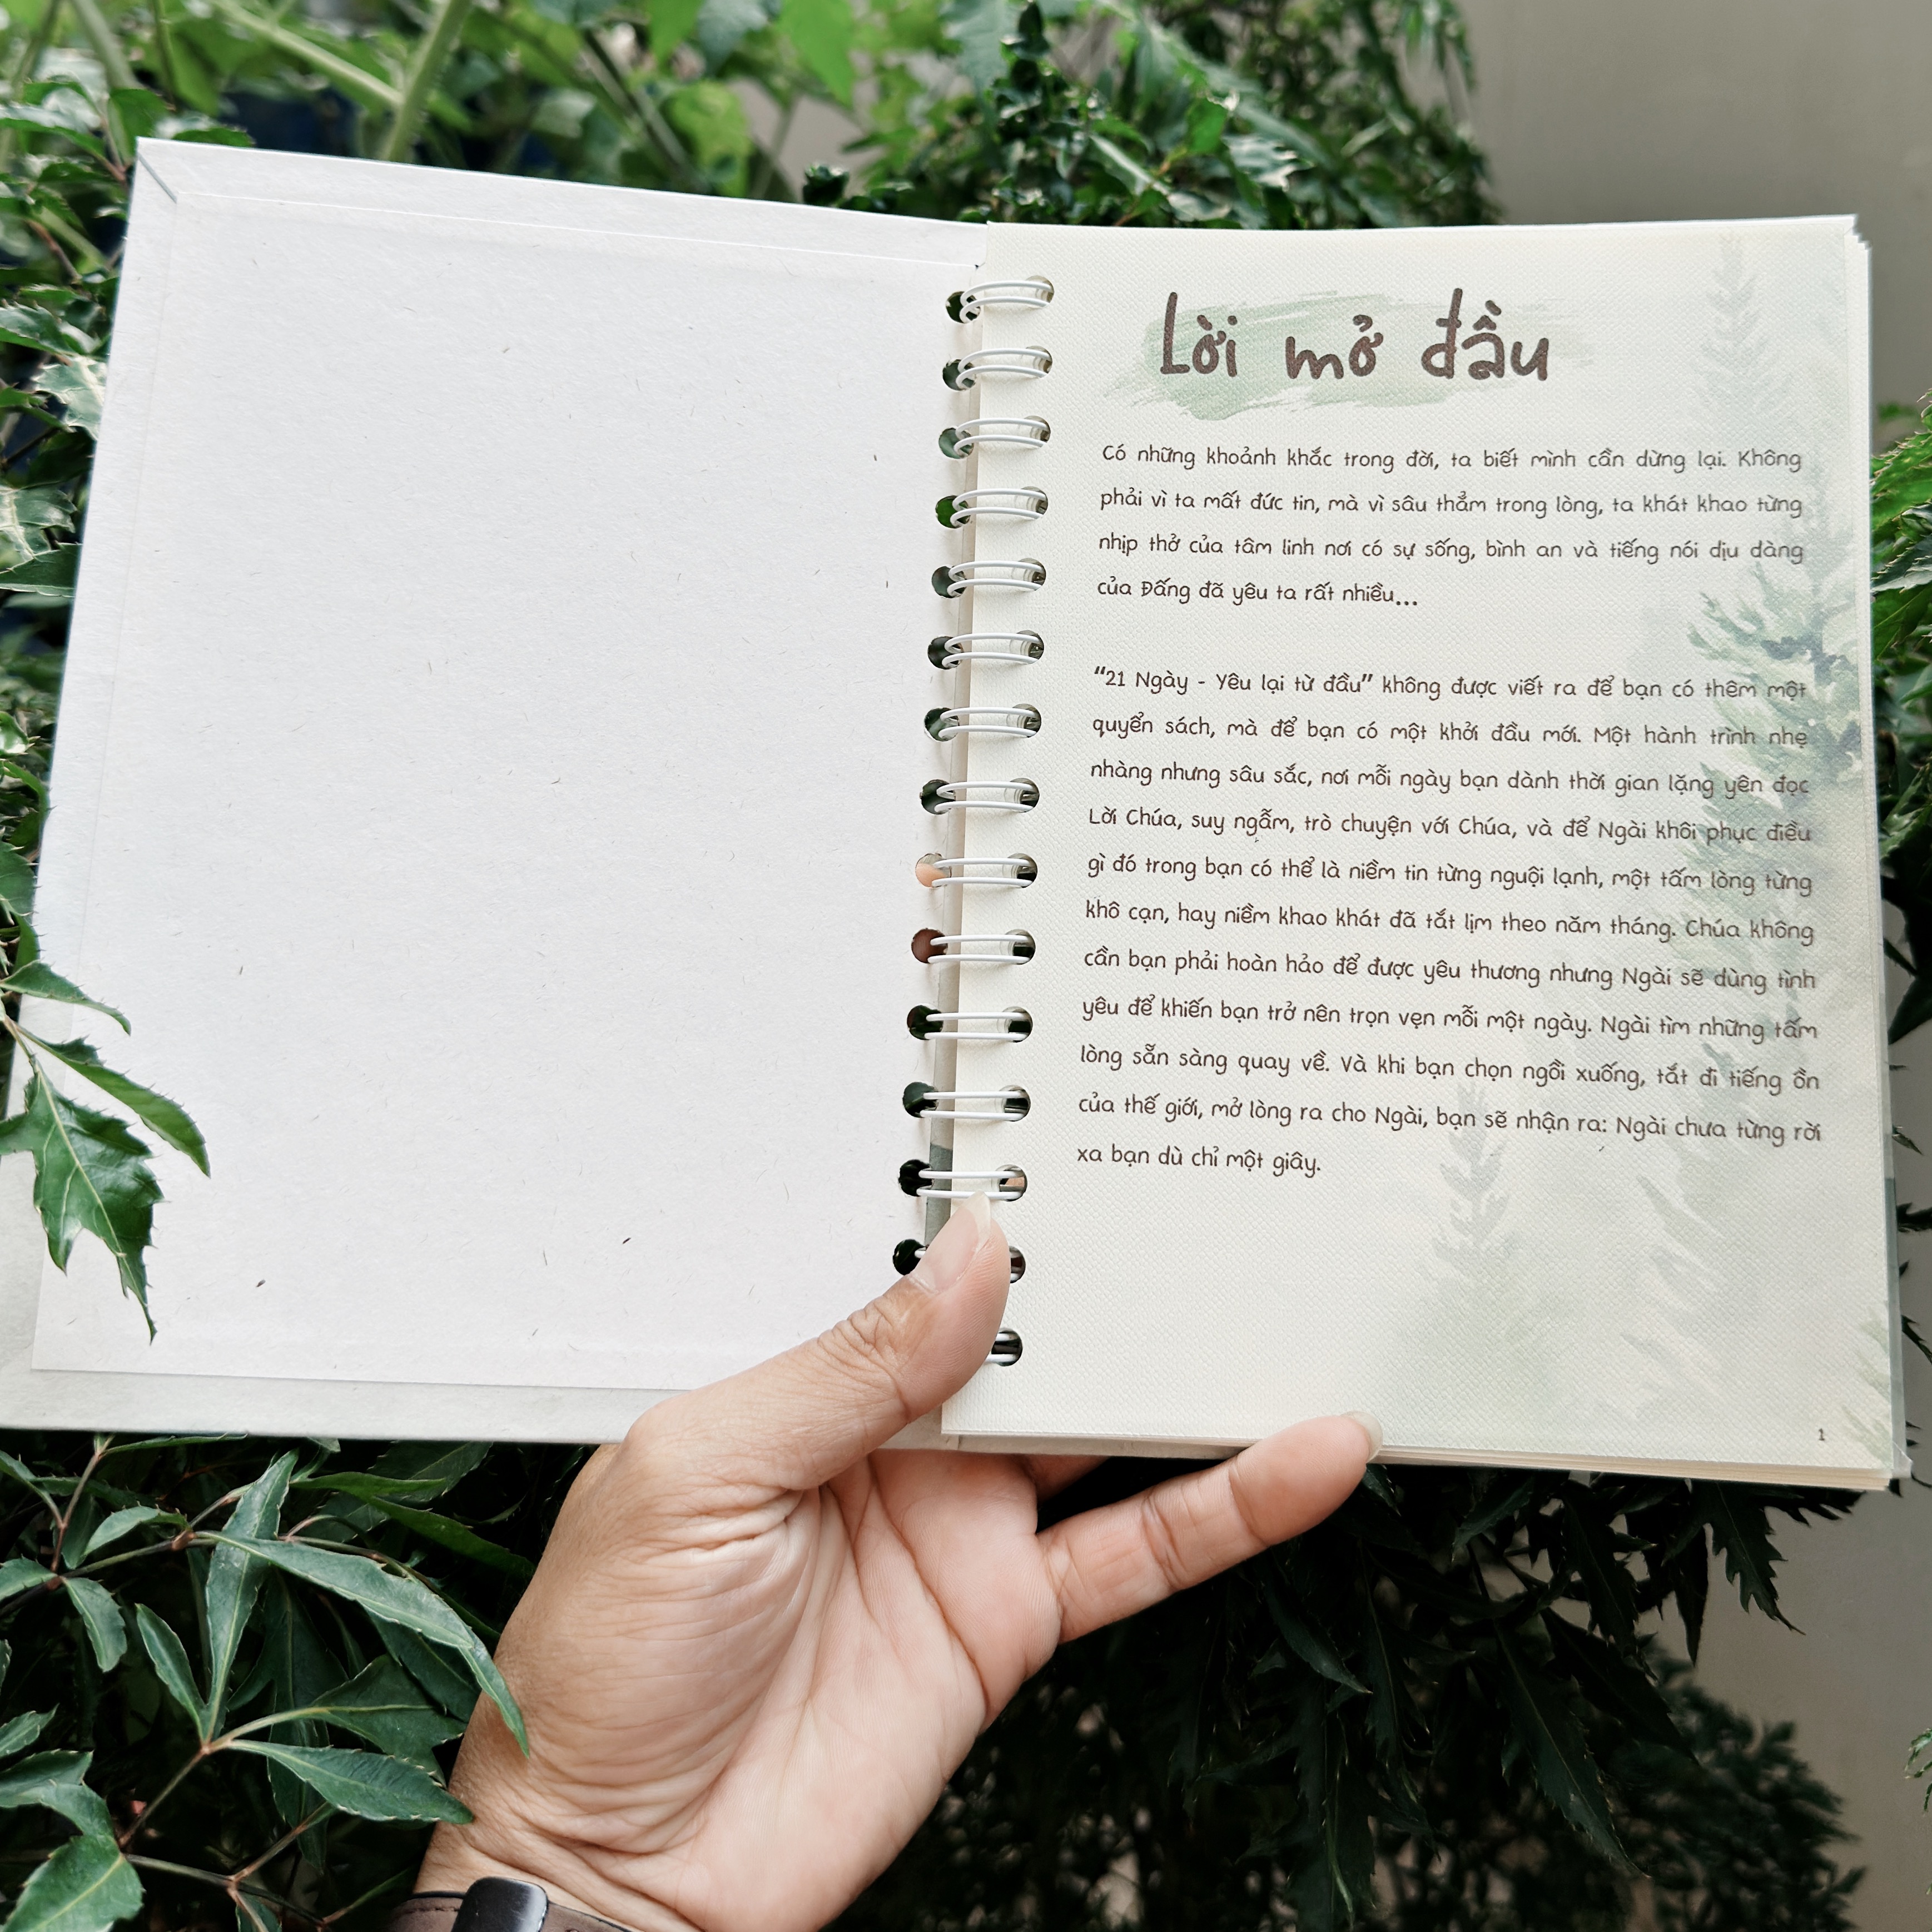 Lời mở đầu
Có những khoảnh khắc trong đời, ta biết mình cần dừng lại. Không
phải vì ta mất đức tin, mà vì sâu thẳm trong lòng, ta khát khao từng
nhịp thở của tâm linh nơi có sự sống, bình an và tiếng nói dịu dàng
của Đấng đã yêu ta rất nhiều...
“21 Ngày - Yêu lại từ đầu” không được viết ra để bạn có thêm một
quyển sách, mà để bạn có một khởi đầu mới. Một hành trình nhẹ
nhàng nhưng sâu sắc, nơi mỗi ngày bạn dành thời gian lặng yên đọc
Lời Chúa, suy ngẫm, trò chuyện với Chúa, và để Ngài khôi phục điều
gì đó trong bạn có thể là niềm tin từng nguội lạnh, một tấm lòng từng
khô cạn, hay niềm khao khát đã tắt lịm theo năm tháng. Chúa không
cần bạn phải hoàn hảo để được yêu thương nhưng Ngài sẽ dùng tình
yêu để khiến bạn trở nên trọn vẹn mỗi một ngày. Ngài tìm những tấm
lòng sẵn sàng quay về. Và khi bạn chọn ngồi xuống, tắt đi tiếng ồn
của thế giới, mở lòng ra cho Ngài, bạn sẽ nhận ra: Ngài chưa từng rời
xa bạn dù chỉ một giây.
1